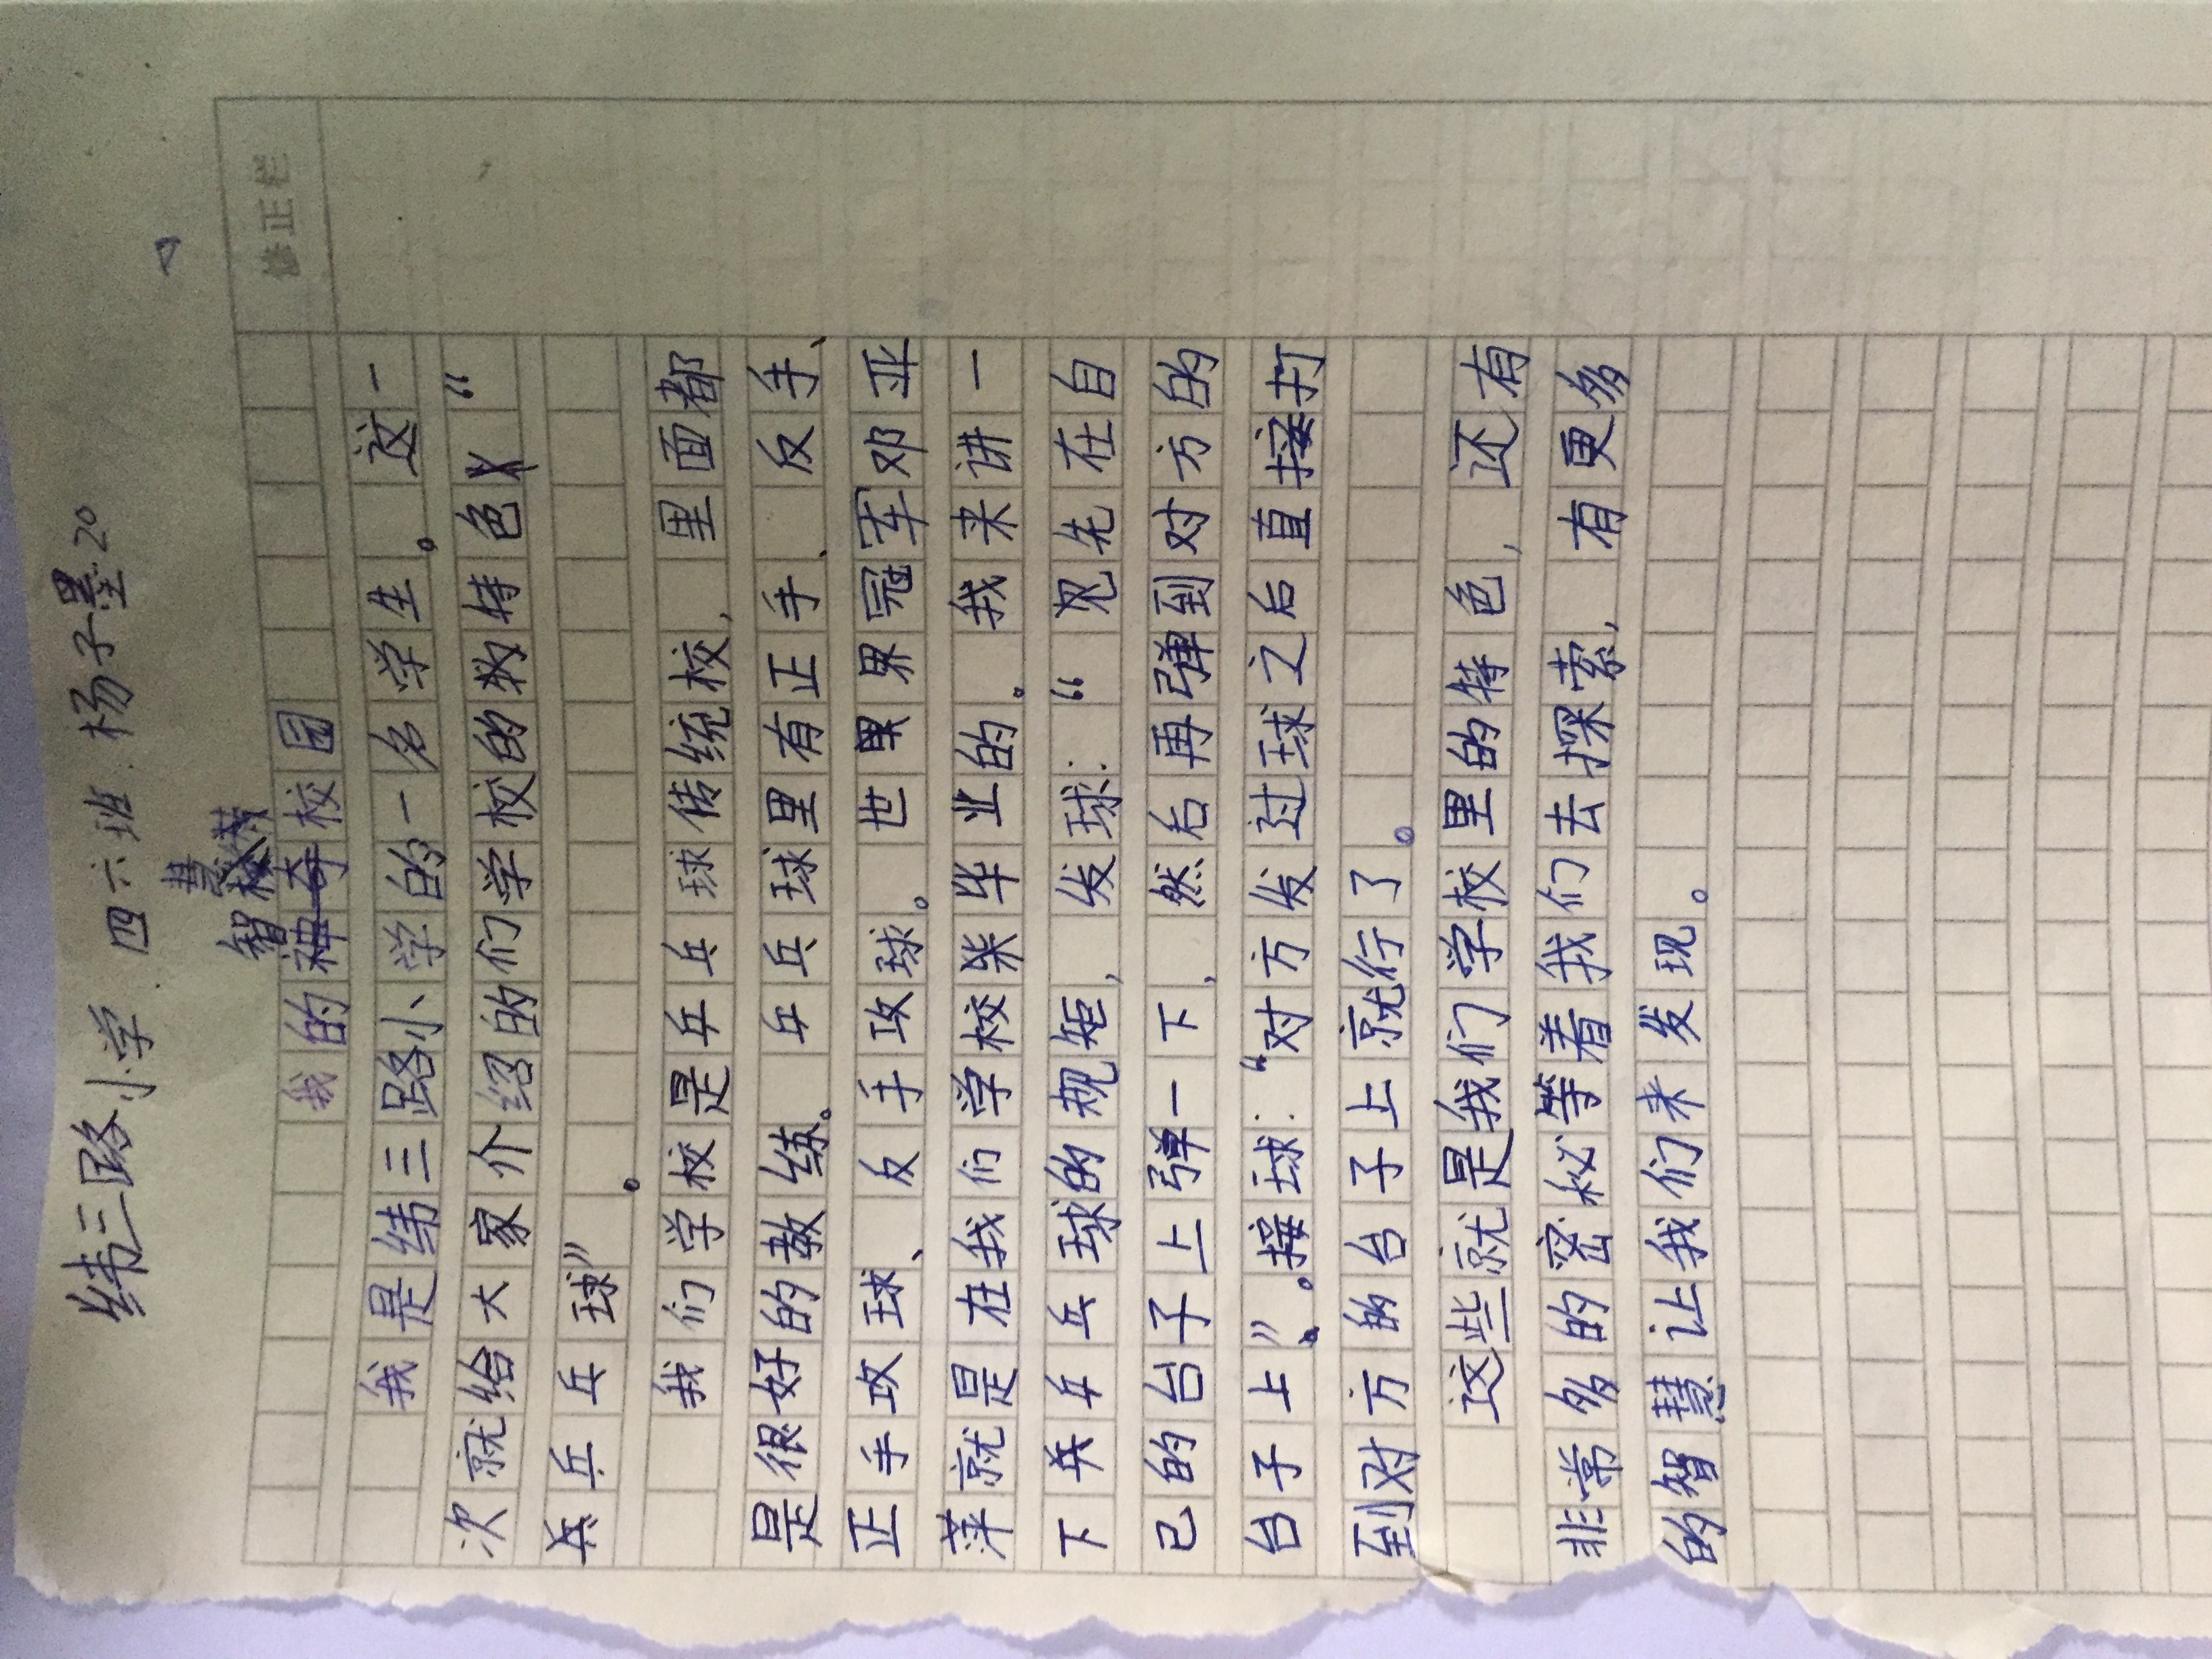 纬三路小学 四六班 杨子墨 20
修正栏
智慧
我的神奇校园
我是纬三路小学的一名学生。这一
次就给大家介绍的们学校的特色“
乒乓球”。
我们学校是乒乓球传统校,里面都
是很好的教练。乒乓球里有正手、反手、
正手攻球、反手攻球。世界冠军邓亚
萍就是在我们学校毕业的。我来讲一
下乒乓球的规矩,发球:“先在自
己的台子上弹一下,然后再弹到对方的
台子上”。接球:“对方发过球之后直接打
到对方的台子上就行了。
这些就是我们学校里的特色,还有
非常多的密秘等着我们去探索,有更多
的智慧让我们来发现。